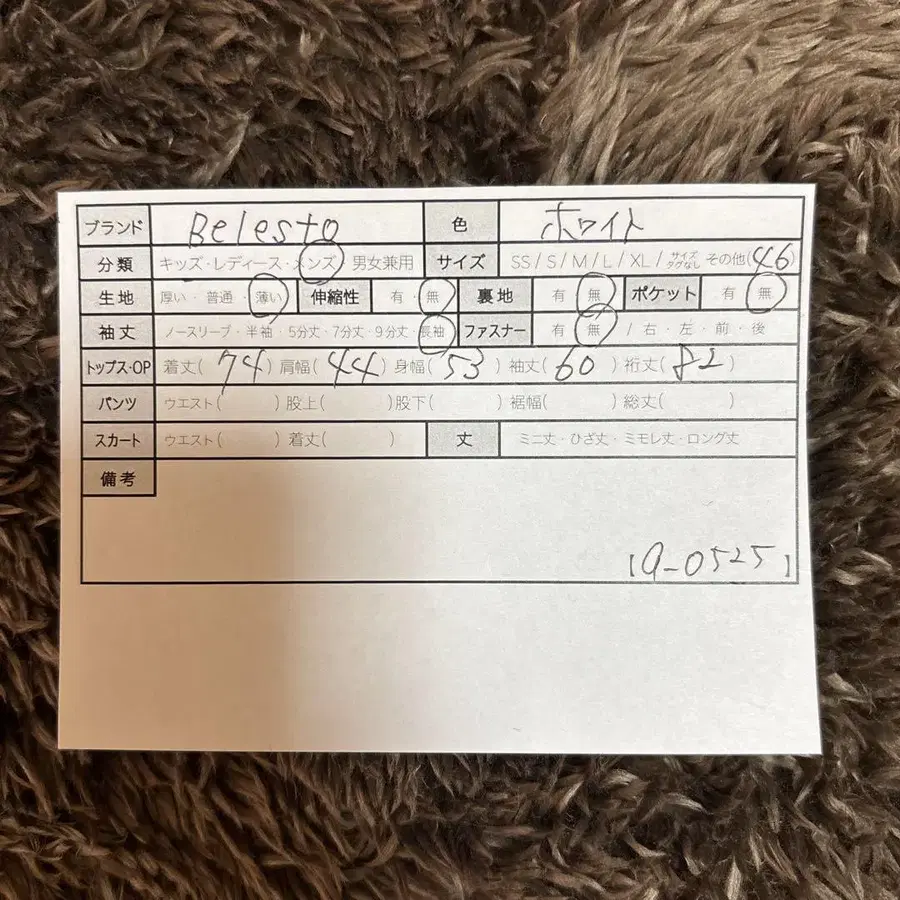 ブランド Belesto 色 ホワイト
分類 キッズ・レディース・メンズ 男女兼用 サイズ SS / S / M / L / XL / サイズタグなし その他(46)
生地 厚い・普通・薄い 伸縮性 有・無 裏地 有・無 ポケット 有・無
袖丈 ノースリーブ・半袖・5分丈・7分丈・9分丈・長袖 ファスナー 有・無 / 右・左・前・後
トップス・OP 着丈( 74 ) 肩幅( 44 ) 身幅( 53 ) 袖丈( 60 ) 裄丈( 82 )
パンツ ウエスト( ) 股上( ) 股下( ) 裾幅( ) 総丈( )
スカート ウエスト( ) 着丈( ) 丈 ミニ丈・ひざ丈・ミモレ丈・ロング丈
備考
【9-0525】